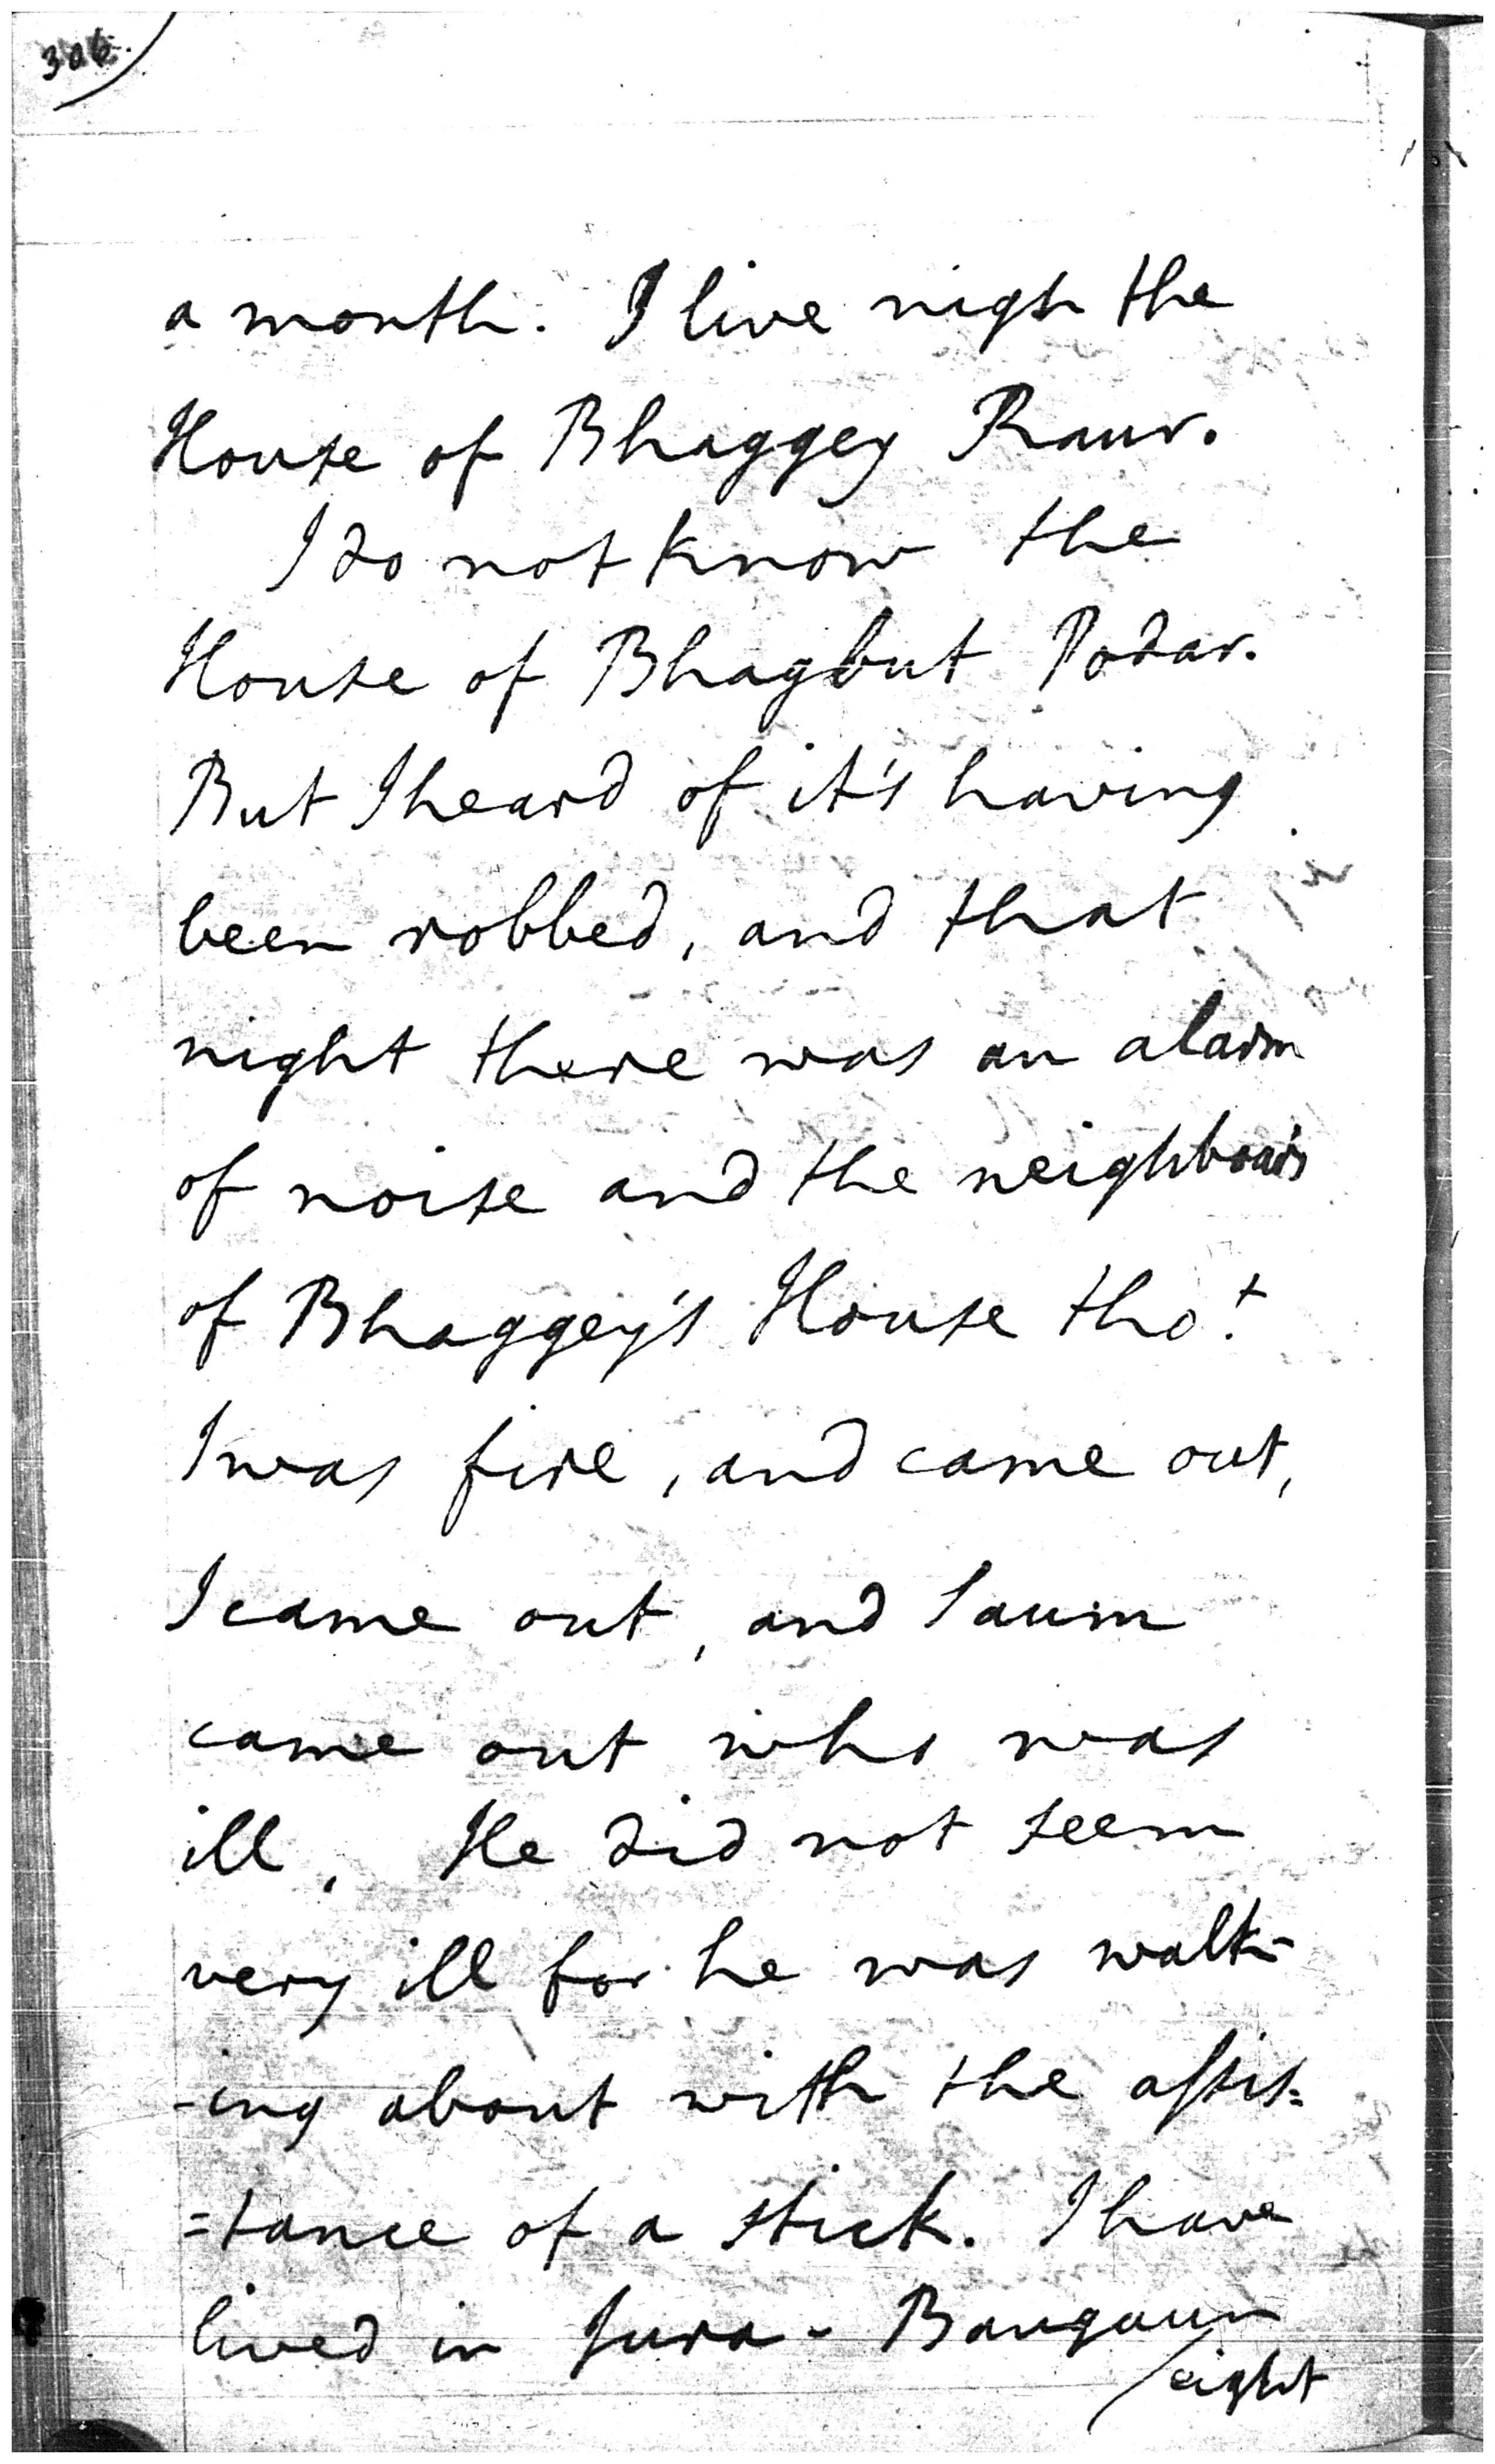 306.
a month. I live nigh the
House of Bhaggey Raur.
I do not know the
House of Bhagbut Podar.
But I heard of it's having
been robbed, and that
night there was an alarm
of noise and the neighbours
of Bhaggey's House tho.t
I was fire, and came out,
I came out, and
came out who was
ill, He did not seem
very ill for he was walk-
-ing about with the assis=
=tance of a stick. I have
lived in Jura - Baugaun
eight